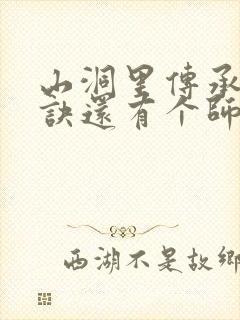 山洞里傳承
訣還有个師
西湖不是故鄉